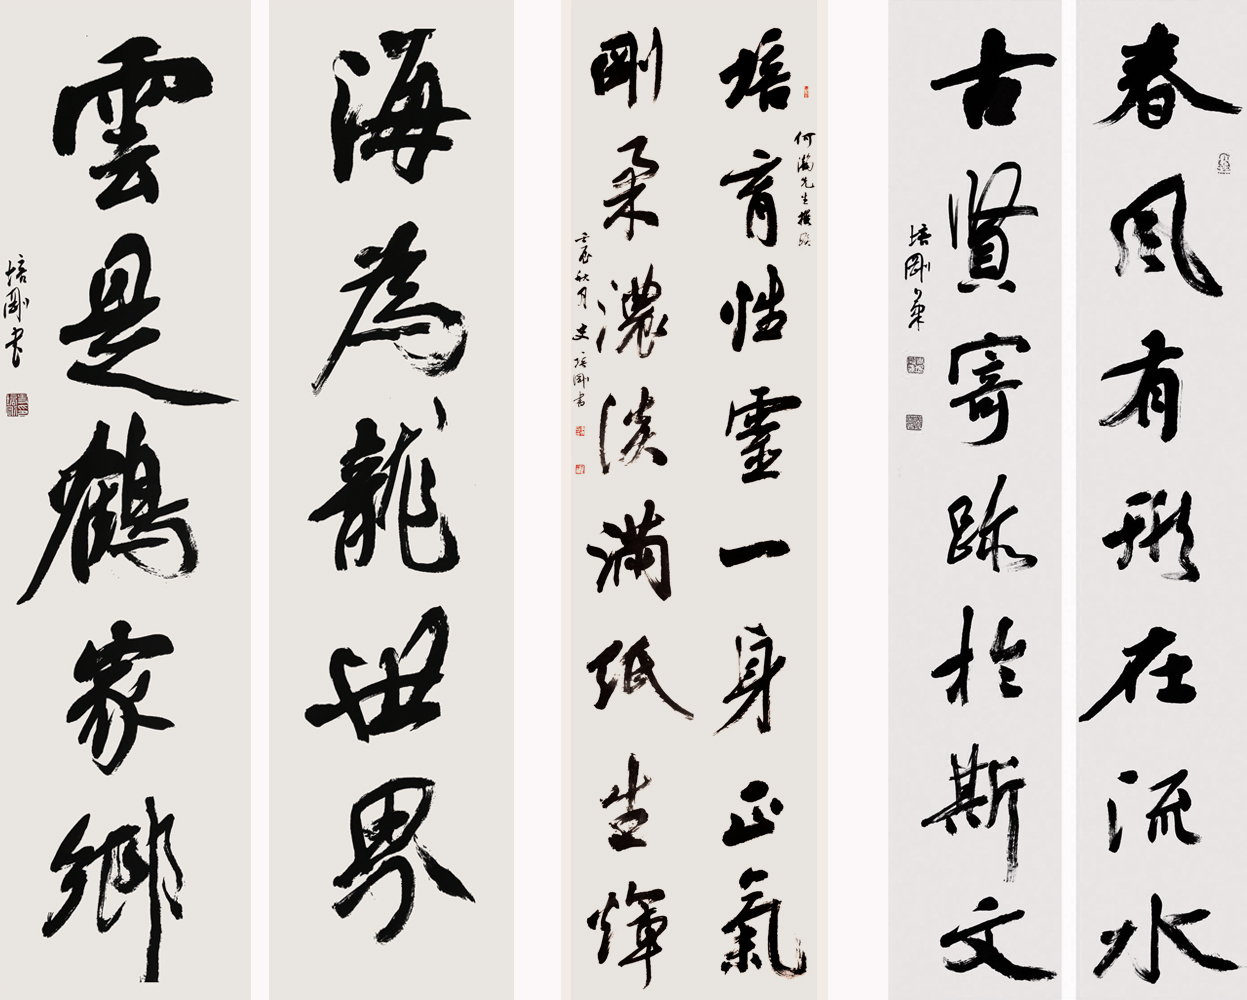 春風有形在流水
古賢寄跡於斯文
培剛桼
培育性靈一身正氣
何瀚先生撰聯
剛柔濃淡滿紙生輝
壬辰秋月史培剛書
海為龍世界
雲是鶴家鄉
培剛書